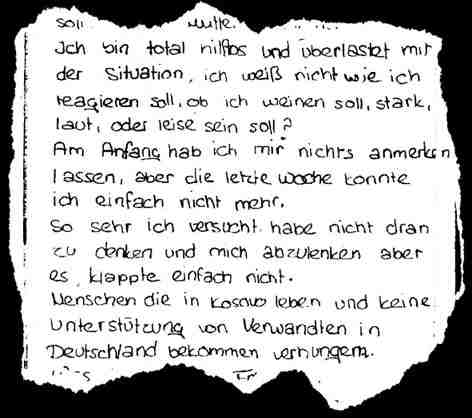 soll
Ich bin total hilflos und überlastet mit
der Situation, ich weiß nicht wie ich
reagieren soll, ob ich weinen soll, stark,
laut, oder leise sein soll?
Am Anfang hab ich mir nichts anmerken
lassen, aber die letzte Woche konnte
ich einfach nicht mehr.
So sehr ich versucht habe nicht dran
zu denken und mich abzulenken aber
es klappte einfach nicht.
Menschen die in Kosovo leben und keine
Unterstützung von Verwandten in
Deutschland bekommen verhungern.